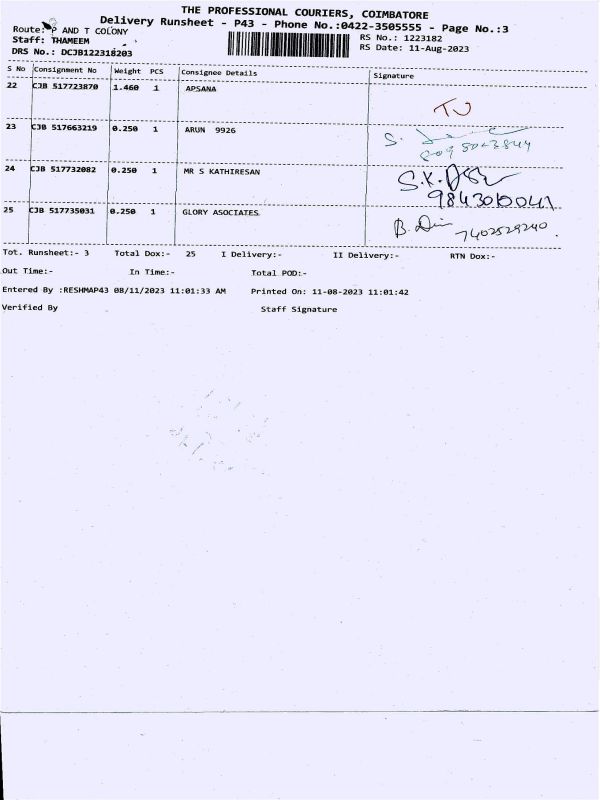 THE PROFESSIONAL COURIERS, COIMBATORE
Delivery Runsheet - P43 - Phone No.:0422-3505555 - Page No.:3
Route: P AND T COLONY
RS No.: 1223182
Staff: THAMEEM
RS Date: 11-Aug-2023
DRS No.: DCJB122318203
S No Consignment No Weight PCS Consignee Details Signature
22 CJB 517723870 1.460 1 APSANA
23 CJB 517663219 0.250 1 ARUN 9926
S.
24 CJB 517732082 0.250 1 MR S KATHIRESAN
S.K.
25 CJB 517735031 0.250 1 GLORY ASOCIATES
B. 7402529240.
Tot. Runsheet:- 3 Total Dox:- 25 I Delivery:- II Delivery:- RTN Dox:-
Out Time:- In Time:- Total POD:-
Entered By :RESHMAP43 08/11/2023 11:01:33 AM Printed On: 11-08-2023 11:01:42
Verified By Staff Signature